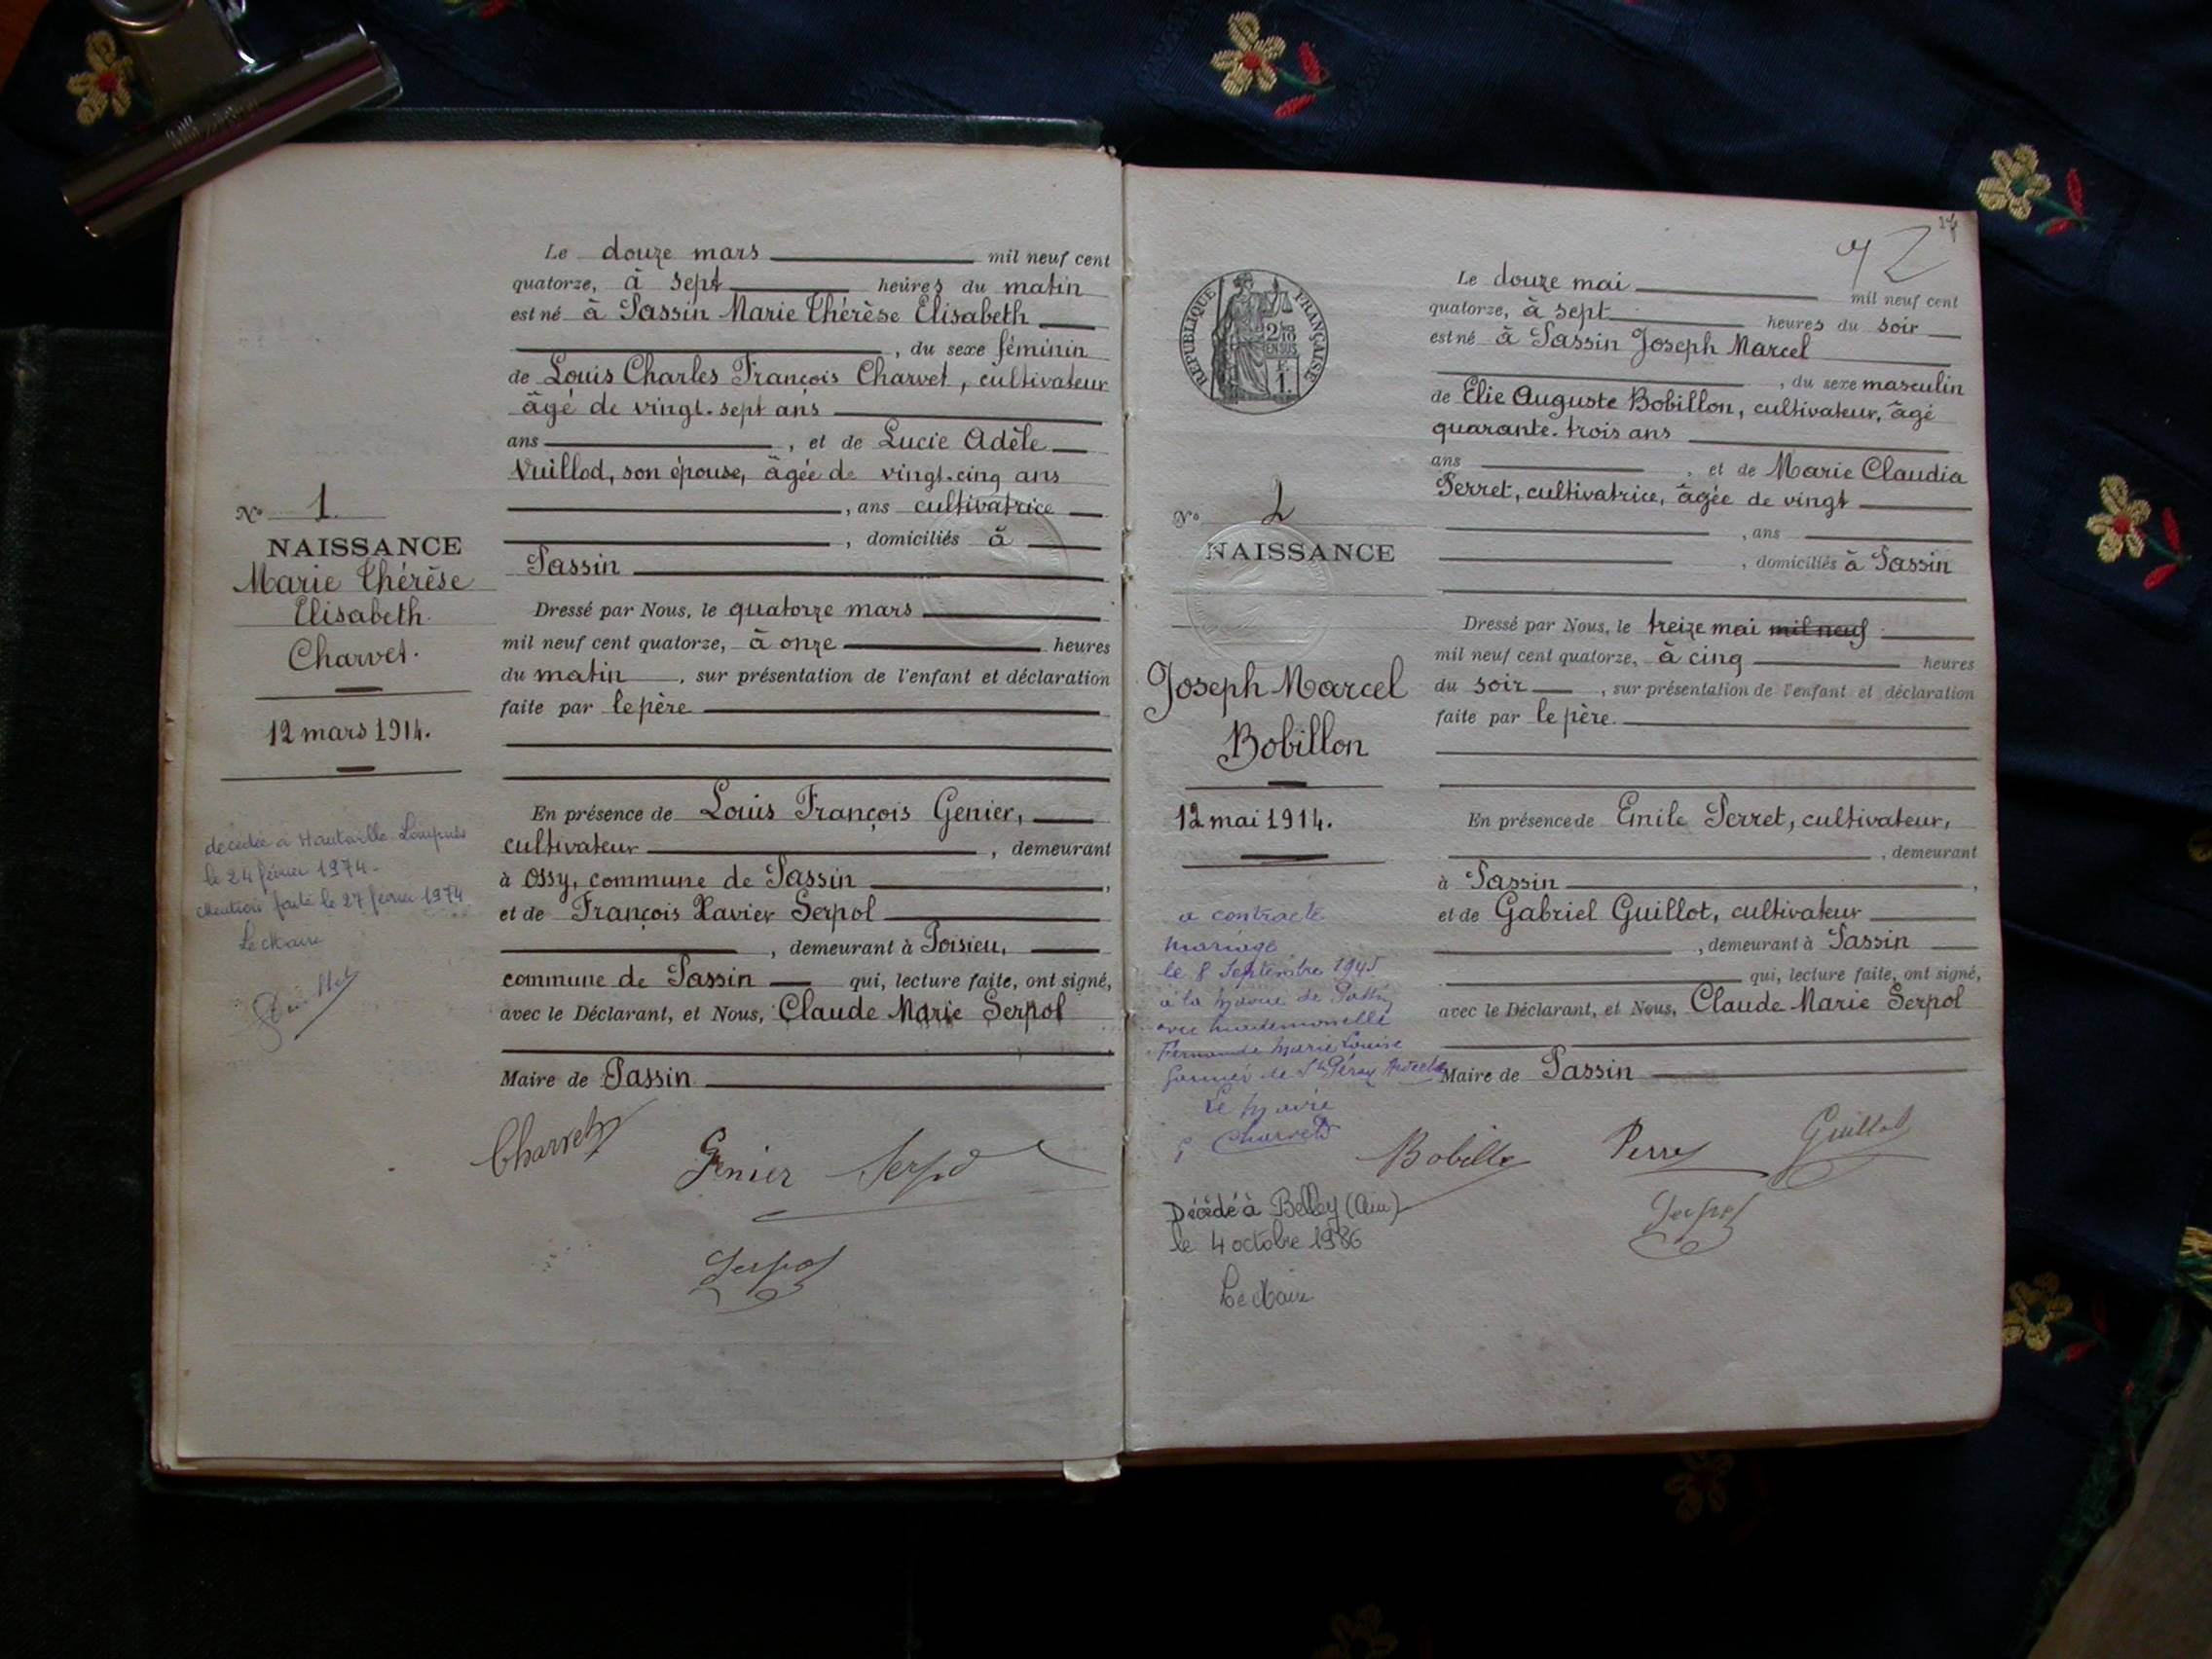 Le douze mars mil neuf cent
quatorze, à sept heures du matin
est né à Passin Marie Thérèse Elisabeth
, du sexe féminin
de Louis Charles François Charvet, cultivateur
âgé de vingt-sept ans
ans , et de Lucie Adèle
Vuillod, son épouse, âgée de vingt-cinq ans
, ans cultivatrice
, domiciliés à
Passin
Dressé par Nous, le quatorze mars
mil neuf cent quatorze, à onze heures
du matin , sur présentation de l'enfant et déclaration
faite par le père
En présence de Louis François Genier,
cultivateur , demeurant
à Ossy, commune de Passin ,
et de François Xavier Serpol
, demeurant à Poisieu,
commune de Passin qui, lecture faite, ont signé,
avec le Déclarant, et Nous, Claude Marie Serpol
Maire de Passin
Charvet
Genier Serpol
Serpol
No 1.
NAISSANCE
Marie Thérèse
Elisabeth
Charvet.
12 mars 1914.
décédée à Hauteville Lompnes
le 24 février 1974.
Mention faite le 27 février 1974
Le Maire
17
72
RÉPUBLIQUE FRANÇAISE
2/10
EN SUS
1.
Le douze mai mil neuf cent
quatorze, à sept heures du soir
est né à Passin Joseph Marcel
, du sexe masculin
de Elie Auguste Bobillon, cultivateur, âgé
quarante-trois ans
ans , et de Marie Claudia
Perret, cultivatrice, âgée de vingt
, ans
, domiciliés à Passin
Dressé par Nous, le treize mai mil neuf
mil neuf cent quatorze, à cinq heures
du soir , sur présentation de l'enfant et déclaration
faite par le père.
En présence de Emile Perret, cultivateur,
, demeurant
à Passin ,
et de Gabriel Guillot, cultivateur
, demeurant à Passin
qui, lecture faite, ont signé,
avec le Déclarant, et Nous, Claude Marie Serpol
Maire de Passin
Bobillon Perret Guillot
Serpol
No 2
NAISSANCE
Joseph Marcel
Bobillon
12 mai 1914.
a contracté
mariage
le 8 Septembre 1945
à la mairie de Passin
avec mademoiselle
Fernande Marie Louise
de St Péray Ardèche
Le maire
Charvet
Décédé à Belley (Ain)
le 4 octobre 1986
Le Maire